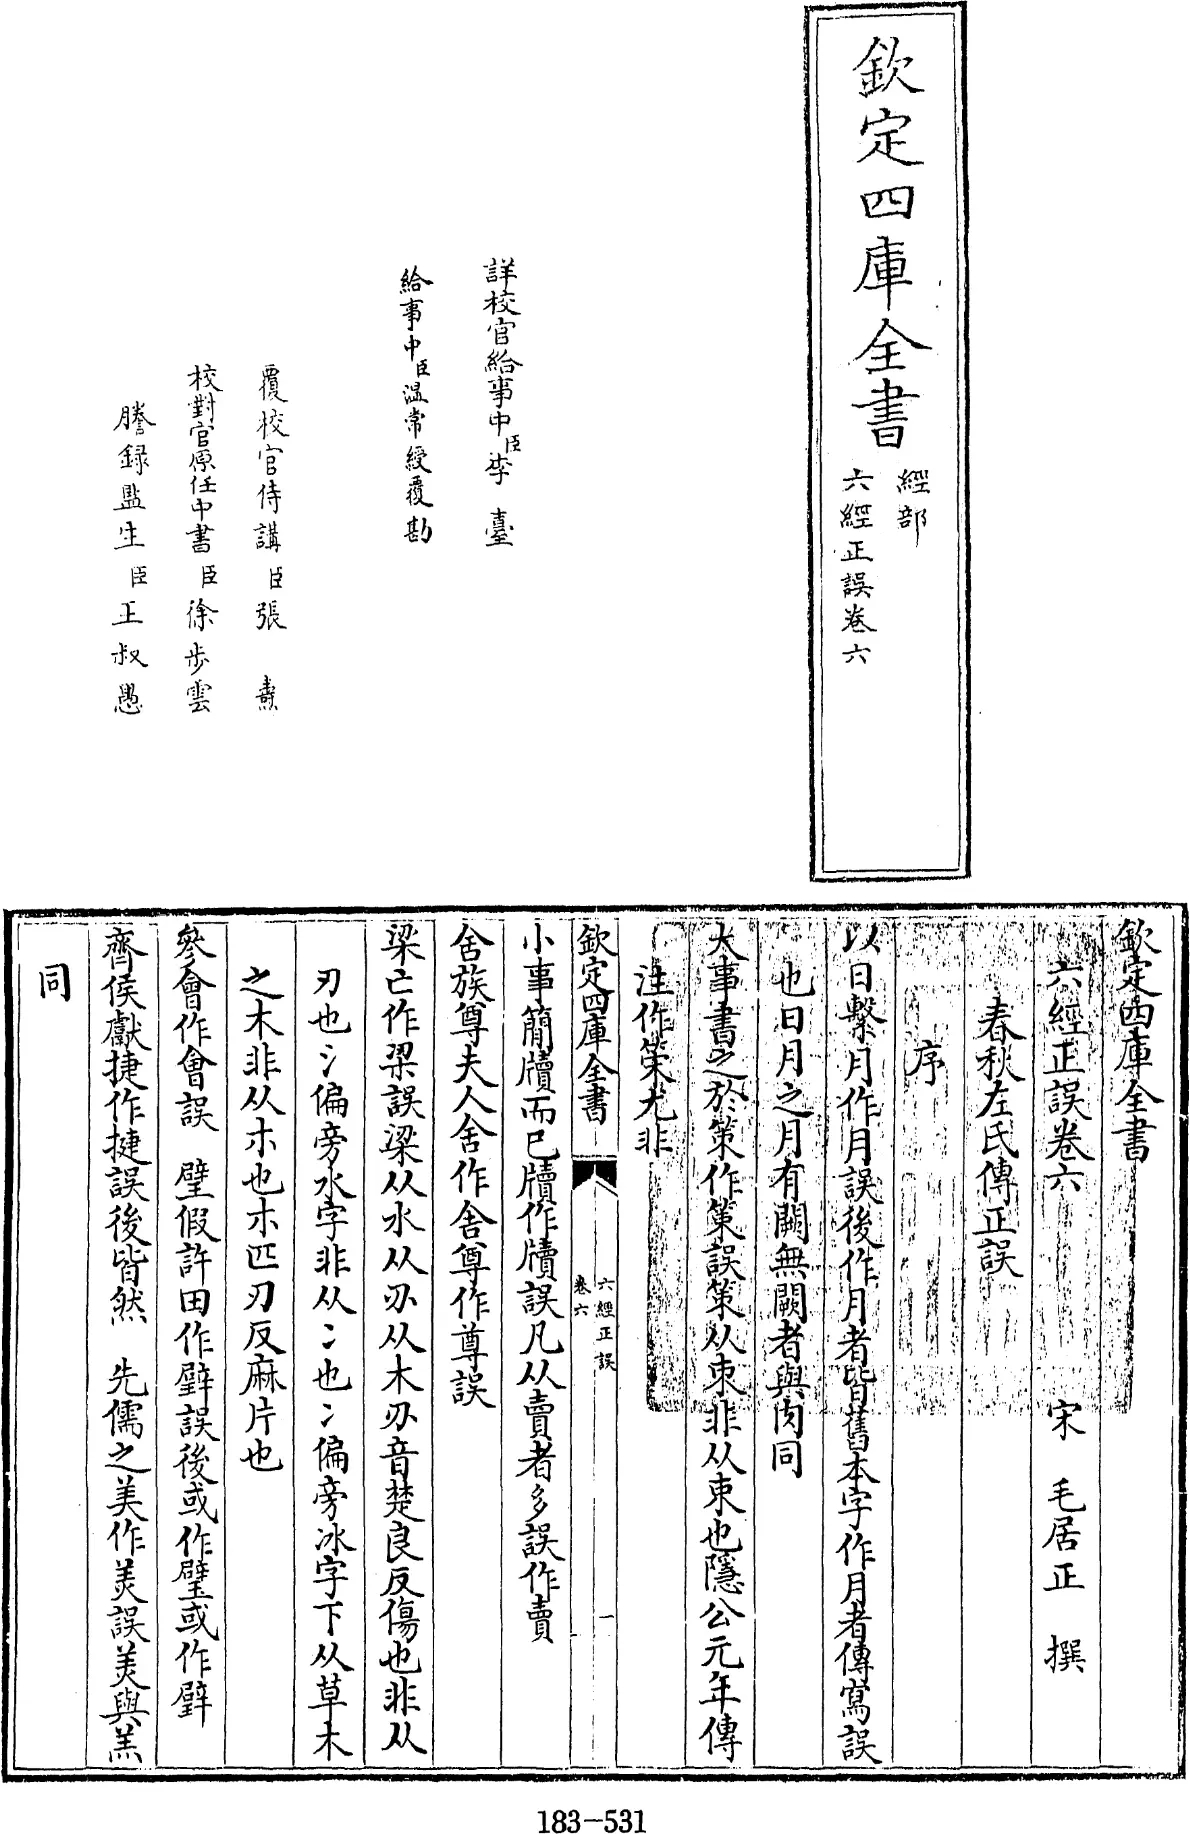 欽定四庫全書
經部
六經正誤卷六
詳校官給事中臣李臺
給事中臣溫常綬覆勘
覆校官侍講臣張燾
校對官原任中書臣徐步雲
謄錄監生臣王叔愚
欽定四庫全書
六經正誤卷六
宋 毛居正 撰
春秋左氏傳正誤
序
以日繫月作月誤後作月者皆舊本字作月者傳寫誤
也日月之月有闕無闕者與肉同
大事書之於策作策誤策从朿非从束也隱公元年傳
注作筞尤非
欽定四庫全書
六經正誤
卷六
一
小事簡牘而已牘作牘誤凡从賣者多誤作賣
舍族尊夫人舍作舍尊作尊誤
梁亡作梁誤梁从水从刅从木刅音楚良反傷也非从
刃也氵偏旁水字非从冫也冫偏旁冰字下从草木
之木非从朩也朩匹刃反麻片也
參會作㑹誤 璧假許田作壁誤後或作璧或作辟
齊侯獻捷作㨗誤後皆然 先儒之美作羙誤羙與羔
同
183-531